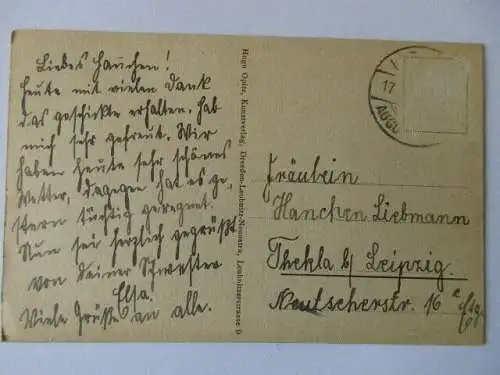 Liebes Hannchen!
Heute mit vielen Dank
das geschickte erhalten. Hab
mich sehr gefreut. Wir
haben heute sehr schönes
Wetter, dagegen hat es ge-
stern tüchtig geregnet.
Nun sei herzlich gegrüßt
von deiner Schwester
Elsa.
Viele Grüße an alle.
Hugo Opitz, Kunstverlag, Dresden-Leubnitz-Neuostra,
17
AUGU
Fräulein
Hanchen Liebmann
Thekla b/ Leipzig.
Neutscherstr. 16